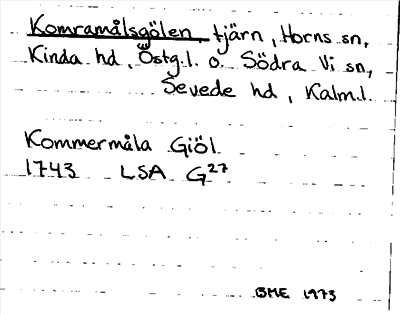 Komramålsgölen, tjärn, Horns sn,
Kinda hd, Östg.l. o. Södra Vi sn,
Sevede hd, Kalm.l.
Kommermåla Giöl
1743 LSA G27
BME 1973